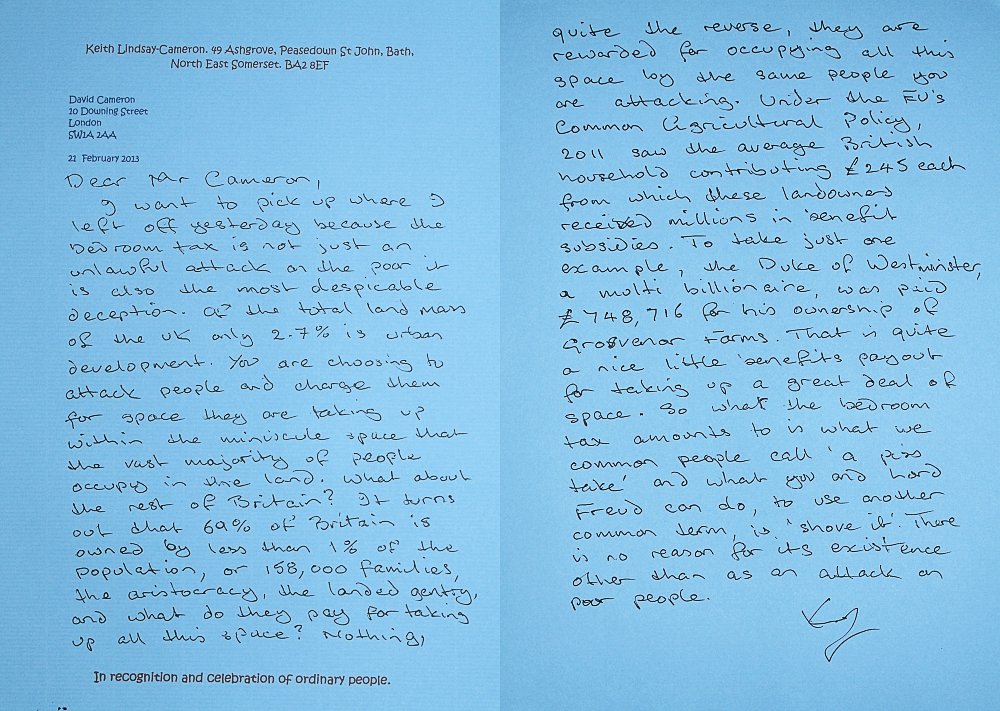 Keith Lindsay-Cameron. 49 Ashgrove, Peasedown St John, Bath,
North East Somerset. BA2 8EF
David Cameron
10 Downing Street
London
SW1A 2AA
21 February 2013
Dear Mr Cameron,
I want to pick up where I
left off yesterday because the
bedroom tax is not just an
unlawful attack on the poor it
is also the most despicable
deception. Of the total land mass
of the UK only 2.7% is urban
development. You are choosing to
attack people and charge them
for space they are taking up
within the miniscule space that
the vast majority of people
occupy in the land. What about
the rest of Britain? It turns
out that 69% of Britain is
owned by less than 1% of the
population, or 158,000 families,
the aristocracy, the landed gentry,
and what do they pay for taking
up all this space? Nothing,
In recognition and celebration of ordinary people.
quite the reverse, they are
rewarded for occupying all this
space by the same people you
are attacking. Under the EU's
Common Agricultural Policy,
2011 saw the average British
household contributing £245 each
from which these landowners
received millions in benefit
subsidies. To take just one
example, the Duke of Westminster,
a multi billionaire, was paid
£748,716 for his ownership of
Grosvenor Farms. That is quite
a nice little benefits payout
for taking up a great deal of
space. So what the bedroom
tax amounts to is what we
common people call 'a piss
take' and what you and Lord
Freud can do, to use another
common term, is 'shove it'. There
is no reason for its existence
other than as an attack on
poor people.